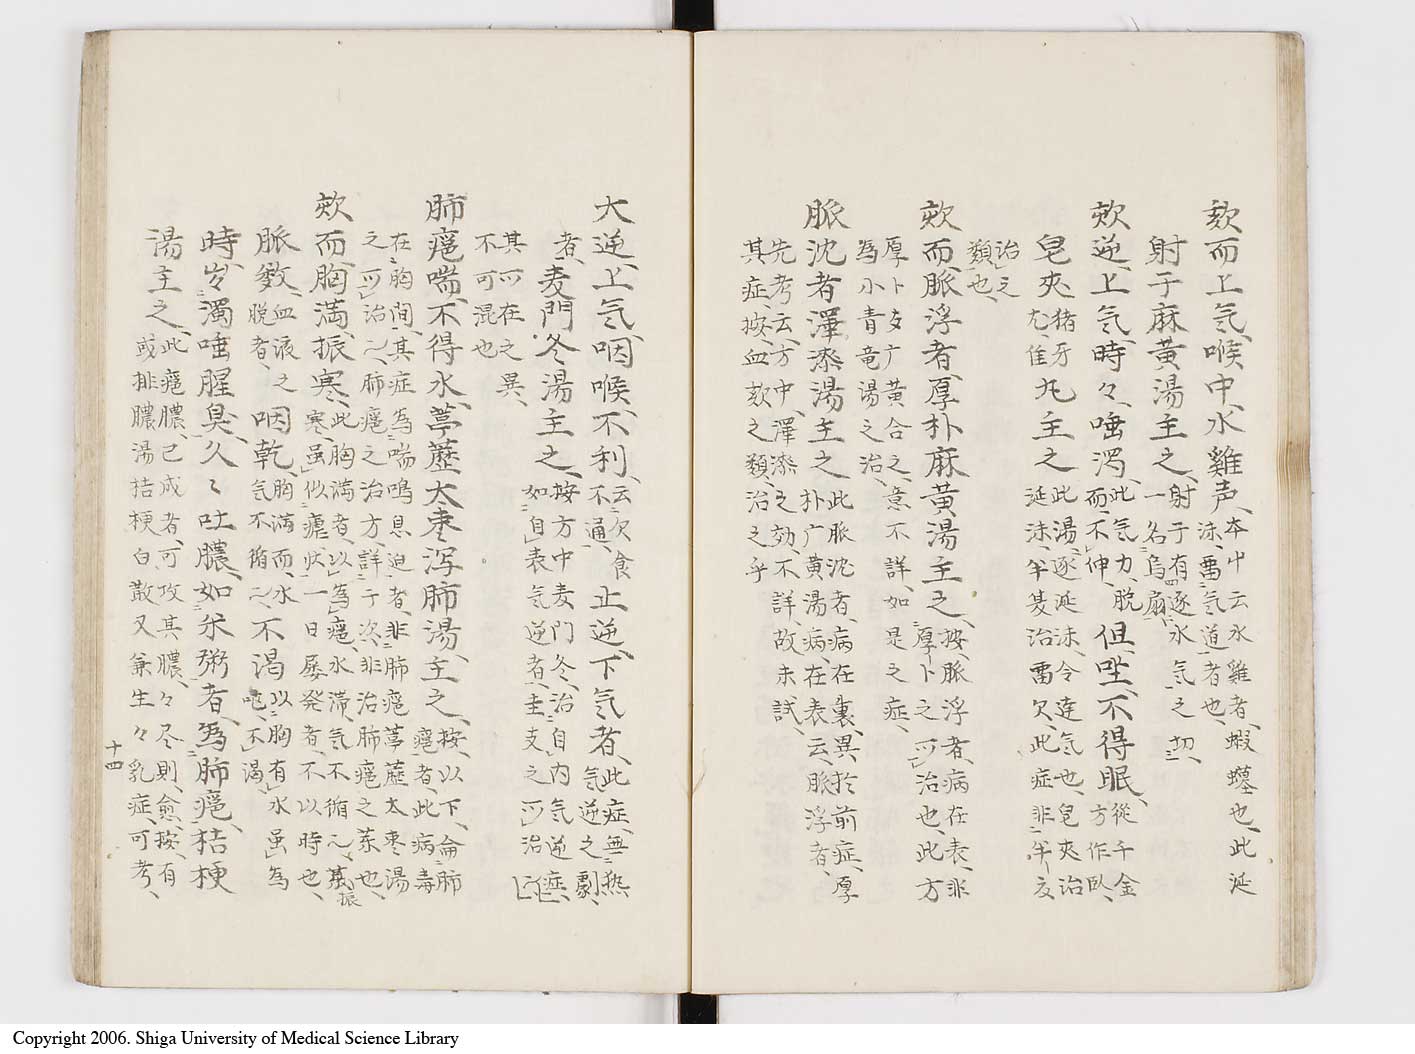 欬而上気、喉中、水雞声、本艸云水雞者、蝦蟇也、此涎
沫、雷気道者也、
射干麻黄湯主之、射干有逐水気之切、
一名烏扇、
欬逆、上気、時々、唾濁、此気力、脱
而、不伸、但、坐、不得眠、從千金
方作臥、
皂夾猪牙
尤佳丸主之此湯、逐涎沫、令達気也、皂夾治
涎沫、半夏治雷欠、此症非半夏、
治之
類也、
欬而、脈浮者、厚朴麻黄湯主之、按、脈浮者、病在表、非
厚卜之所治也、此方
厚卜多广黄合之、意不詳、如是之症、
為小青竜湯之治、
脈沈者澤漆湯主之此脈沈者、病在裏、異於前症、厚
朴广黄湯、病在表、云、脈浮者、
先考云、方中、澤漆之効、不詳、故未試、
其症、按、血欬之類、治之乎
大逆、上気、咽喉、不利、云欠食
不通、止逆、下気者、此症、無熱
気逆之劇、
者、麦門、冬湯主之、按方中麦門冬、治自内気逆症、
如自表気逆者、主支之所治
其所在之異、
不可混也
肺癰喘、不得水、葶藶大棗泻肺湯、主之、按、以下、侖肺
癰者、此病毒
在胸間、其症為喘鳴息迫者、非肺癰葶藶大棗湯
之所治、肺癰之治方、詳于次、非治肺癰之薬也、
欬而、胸満、振寒、此胸満者、以為癰、水滞、気不循
寒、虽似瘧状、一日屡発者、不以時也、
脈数、血液之
脱者、咽乾、胸満而、水
気不循、不渇以胸有水虽為
咽、不渇、
時、出濁唾腥臭、久々吐膿、如米粥者、為肺癰、桔梗
湯主之、此癰膿、已成者、可攻其膿、々尽則、愈按、有
或排膿湯桔梗白散又兼生々乳症、可考、
十四
Copyright 2006. Shiga University of Medical Science Library